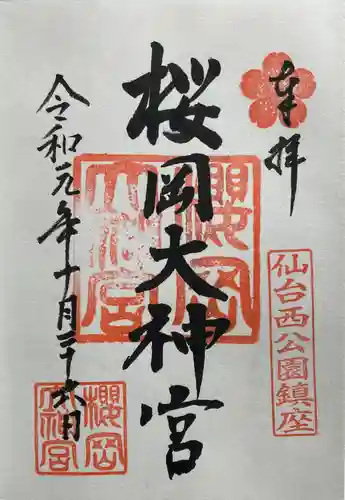 奉拝
仙台西公園鎮座
桜岡大神宮
櫻岡大神宮
令和元年十月二十六日
櫻岡大神宮